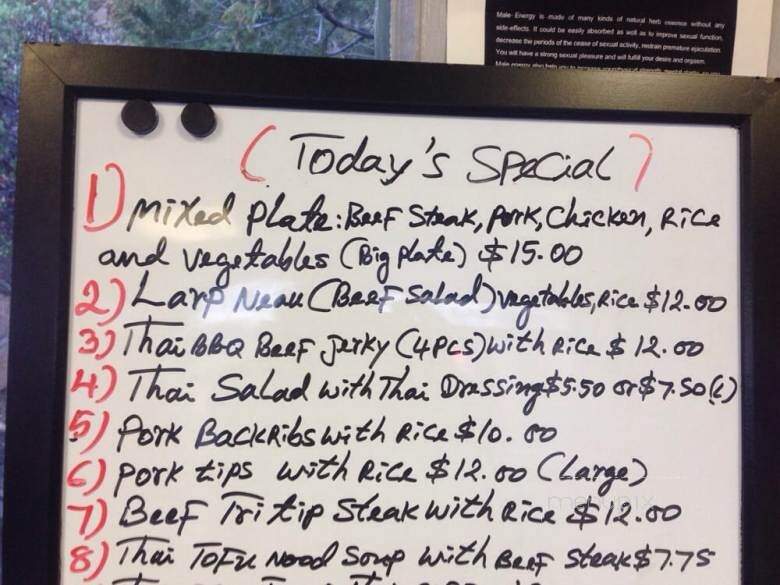 Male Energy is made of many kinds of natural herb essence without any
side-effects. It could be easily absorbed as well as to improve sexual function,
decrease the periods of the cease of sexual activity, restrain premature ejaculation.
You will have a strong sexual pleasure and will fulfill your desire and orgasm.
Male energy also help you to
(Today's Special)
1) Mixed Plate: Beef Steak, Pork, Chicken, Rice
and vegetables (Big Plate) $15.00
2) Larp Neau (Beef Salad) vegetables, Rice $12.00
3) Thai BBQ Beef jerky (4pcs) with Rice $12.00
4) Thai Salad with Thai Dressing $5.50 or $7.50 (L)
5) Pork Back Ribs with Rice $10.00
6) Pork tips with Rice $12.00 (Large)
7) Beef Tri tip Steak with Rice $12.00
8) Thai Tofu Nood Soup with Beef Steak $7.75